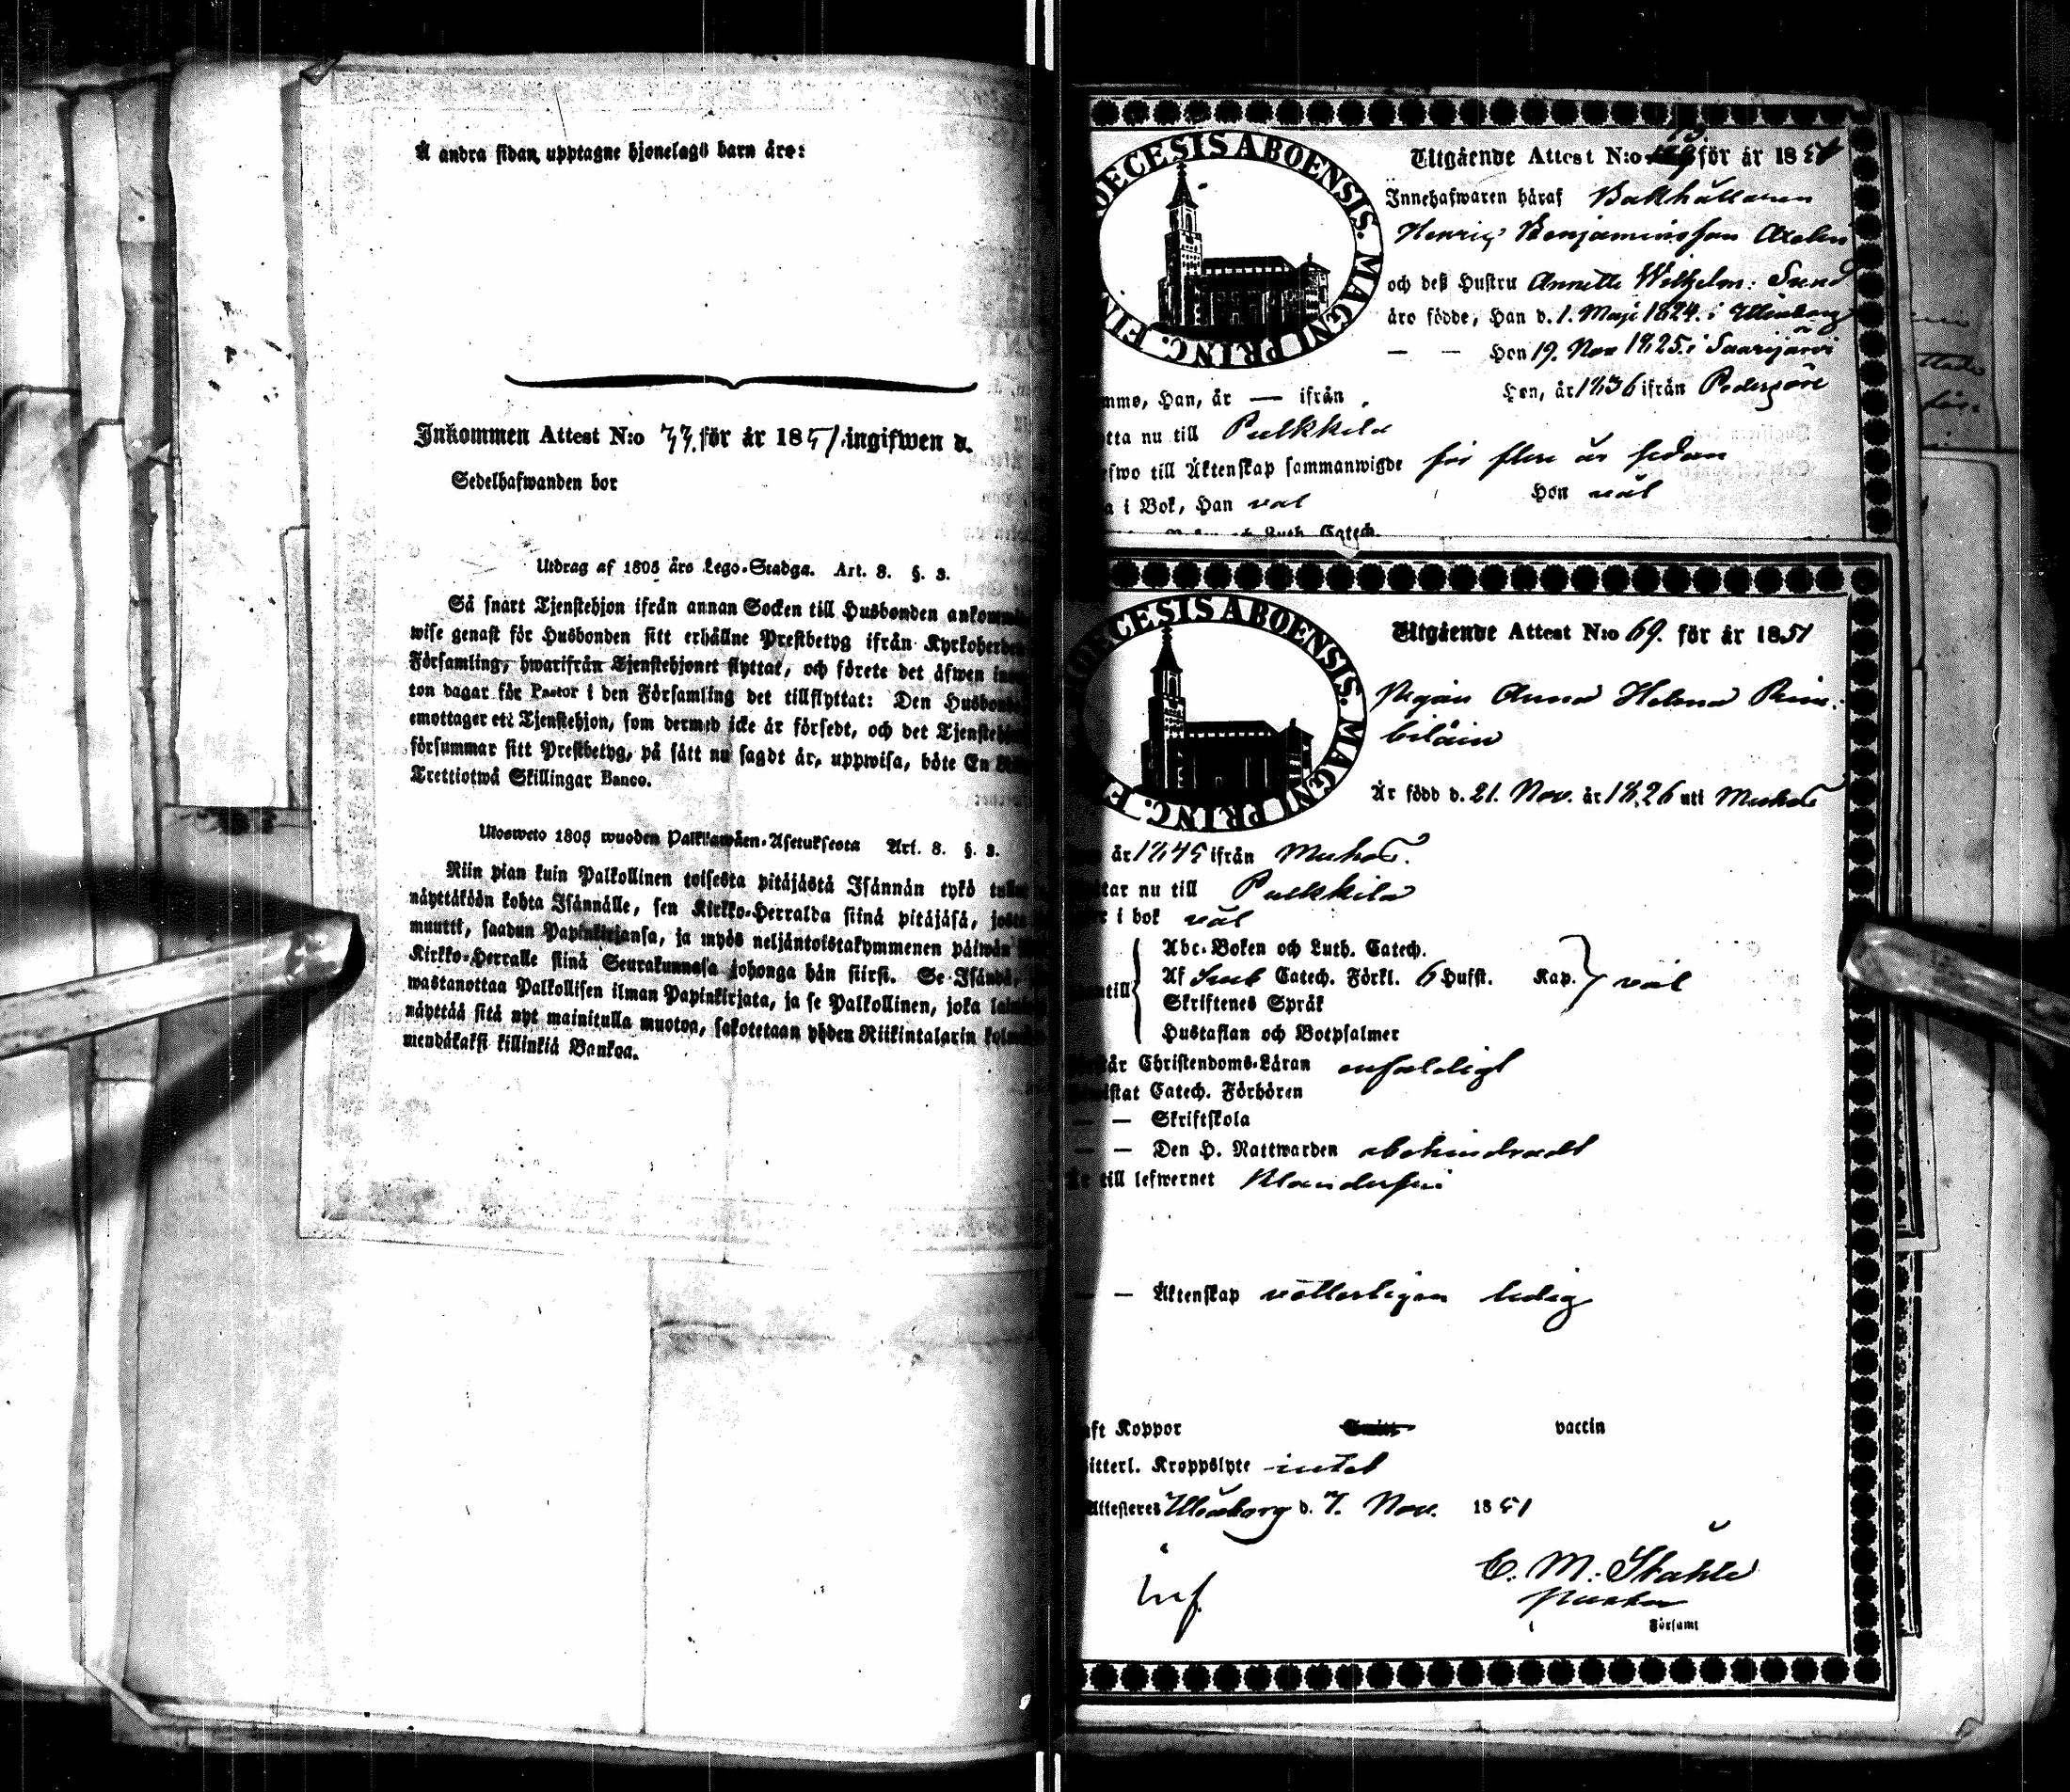 Å andra sidan upptagne hjonelags barn äro:
Inkommen Attest N:o 33. för år 1851. ingifwen d.
Sedelhafwanden bor
Utdrag af 1805 års Lego-Stadga. Art. 8. §. 3.
Så snart Tjenstehjon ifrån annan Socken till Husbonden ankommit
wise genast för Husbonden sitt erhållne Prestbetyg ifrån Kyrkoherden
Församling, hwarifrån Tjenstehjonet flyttat, och förete det äfwen inom
ton dagar för Pastor i den Församling det tillflyttat: Den Husbonde
emottager ett Tjenstehjon, som dermed icke är försedt, och det Tjenstehjon
försummar sitt Prestbetyg, på sätt nu sagdt är, uppwisa, böte En
Trettiotwå Skillingar Banco.
Ulosweto 1805 wuoden Palkkawäen-Asetuksesta Art. 8. §. 3.
Niin pian kuin Palkollinen toisesta pitäjästä Isännän tykö tullut
näyttäköön kohta Isännälle, sen Kirkko-Herralda siinä pitäjäsä, josta
muutti, saadun Papinkirjansa, ja myös neljäntoistakymmenen päiwän
Kirkko-Herralle siinä Seurakunnasa johonga hän siirsi. Se Isändä,
wastanottaa Palkollisen ilman Papinkirjata, ja se Palkollinen, joka
näyttää sitä nyt mainitulla muotoa, sakotetaan yhden Riikintalarin
mendäkaksi killinkiä Bankoa.
DIOECESIS ABOENSIS. MAGNI PRINC.
Utgående Attest N:o för år 1851
Innehafwaren häraf Bakhållaren
Henric Benjaminsson Axelin
och deß Hustru Annette Wilhelm: Sund
äro födde, Han d. 1. Maji 1824. i Uleåborg
— — Hon 19. Nov 1825. i Saarijärvi
mmo, Han, år — ifrån Hon, år 1836 ifrån Pedersöre
tta nu till Pulkkila
fwo till Äktenskap sammanwigde för flere år sedan
a i Bok, Han väl Hon väl
Luth. Catech.
DIOECESIS ABOENSIS. MAGNI PRINC.
Utgående Attest N:o 69. för år 1851
Pigan Anna Helena
Är född d. 21. Nov. år 1826 uti Muhos
år 1845 ifrån Muhos.
ttar nu till Pulkkila
r i bok väl
Abc-Boken och Luth. Catech.
till Af Sveb Catech. Förkl. 6 Hufst. Kap. väl
Skriftenes Språk
Hustaflan och Botpsalmer
år Christendoms-Läran enfaldigt
istat Catech. Förhören
— — Skriftskola
— — Den H. Nattwarden obehindradt
Är till lefwernet klanderfri
— — Äktenskap vetterligen ledig
ft Koppor vaccin
itterl. Kroppslyte intet
Attesteres Uleåborg d. 7. Nov. 1851
C. M. Ståhle
Pastor
i Församl